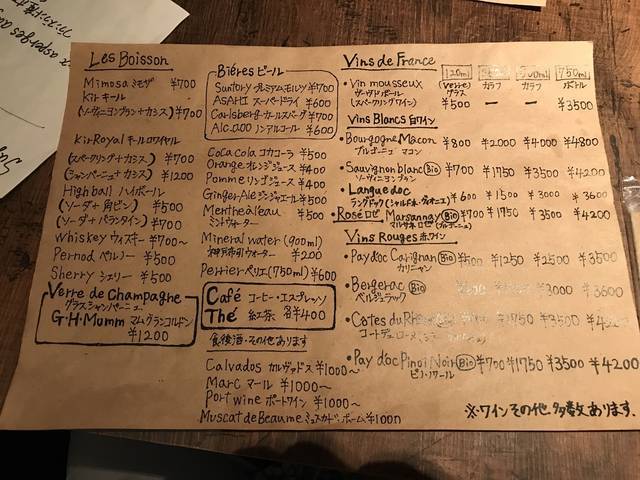 Les Boisson
Mimosa ミモザ ¥700
Kir キール
(ソーヴィニヨンブラン+カシス) ¥700
Kir Royal キールロワイヤル
(スパークリング+カシス) ¥700
(シャンパーニュ+カシス) ¥1200
Highball ハイボール
(ソーダ+角ビン) ¥500
(ソーダ+バランタイン) ¥700
Whiskey ウィスキー ¥700~
Pernod ペルノー ¥500
Sherry シェリー ¥500
Verre de Champagne
グラスシャンパーニュ
G·H·Mumm マムグランコルドン
¥1200
Bières ビール
Suntory プレミアムモルツ ¥700
ASAHI スーパードライ ¥600
Carlsberg カールスバーグ ¥700
Alc.0.00 ノンアルコール ¥600
Coca cola コカコーラ ¥500
Orange オレンジジュース ¥400
Pomme りんごジュース ¥400
Ginger Ale ジンジャエール ¥500
Menthe à l'eau ¥500
ミントウォーター
Mineral water (900ml)
神戸布引ウォーター ¥200
Perrier ペリエ (750ml) ¥600
Café コーヒー・エスプレッソ
Thé 紅茶 各¥400
食後酒・その他あります
Calvados カルヴァドス ¥1000~
Marc マール ¥1000~
Port wine ポートワイン ¥1000~
Muscat de Beaume ミュスカ・ド・ボーム ¥1000
Vins de France
120ml 500ml 750ml
(verre) グラス カラフ カラフ ボトル
• Vin mousseux
ヴァンムスー
(スパークリングワイン) ¥500 ー ー ¥3500
Vins Blancs 白ワイン
• Bourgogne Mâcon ¥800 ¥2000 ¥4000 ¥4800
ブルゴーニュ マコン
• Sauvignon blanc Bio ¥700 ¥1750 ¥3500 ¥4200
ソーヴィニヨンブラン
• Langue doc
ラングドック (シャルドネ・ヴィオニエ) ¥600 ¥1500 ¥3000 ¥3600
• Rosé ロゼ Marsannay Bio ¥700 ¥1750 ¥3500 ¥4200
マルサネ ロゼ (ブルゴーニュ)
Vins Rouges 赤ワイン
• Pay d'oc Carignan Bio ¥500 ¥1250 ¥2500 ¥3500
カリニャン
• Bergerac Bio ¥3000 ¥3600
ベルジュラック
• Côtes du Rhône ¥1750 ¥3500
コートデュローヌ
• Pay d'oc Pinot Noir Bio ¥700 ¥1750 ¥3500 ¥4200
ピノ・ノワール
※ワインその他、多数あります。